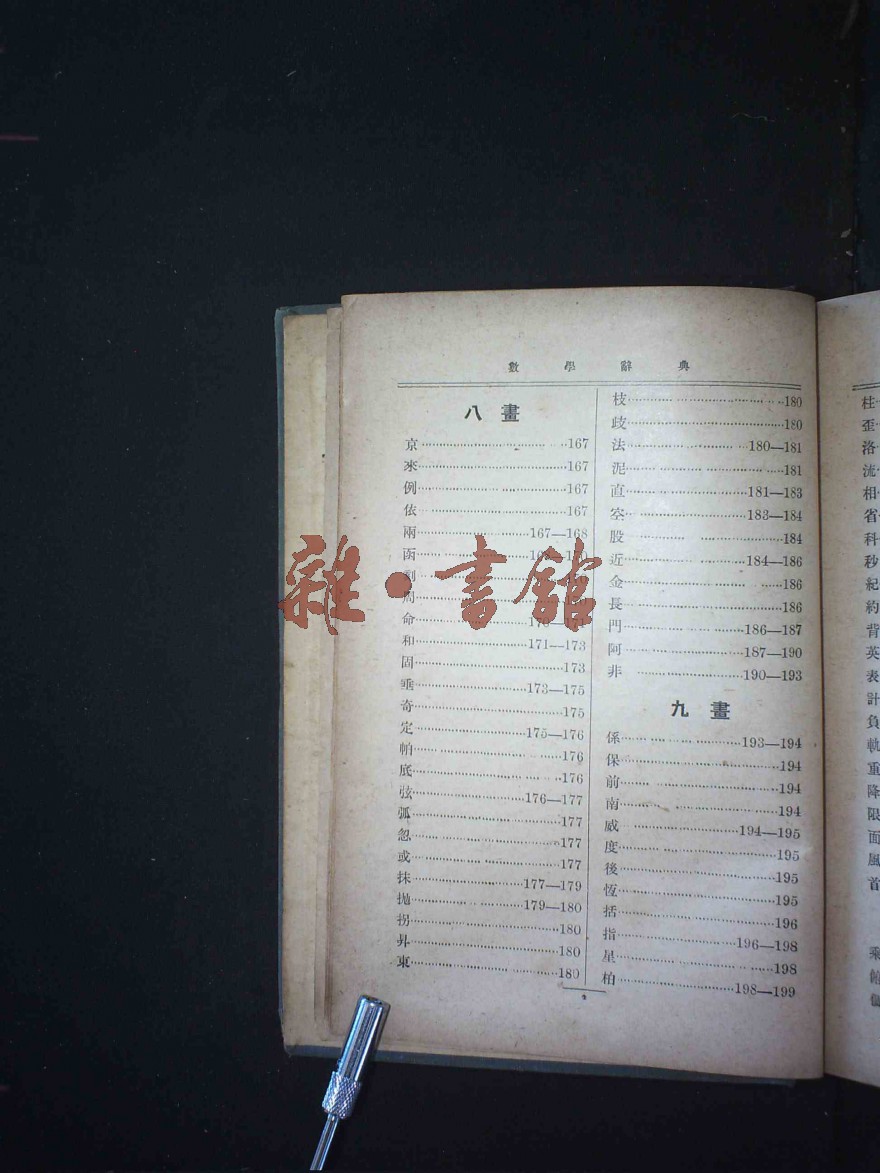 數學辭典
八畫
京 167
來 167
例 167
依 167
兩 167—168
函
制
周
命
和 171—173
固 173
垂 173—175
奇 175
定 175—176
帕 176
底 176
弦 176—177
弧 177
忽 177
或 177
抹 177—179
拋 179—180
拐 180
昇 180
東 180
枝 180
歧 180
法 180—181
泥 181
直 181—183
空 183—184
股 184
近 184—186
金 186
長 186
門 186—187
阿 187—190
非 190—193
九畫
係 193—194
保 194
前 194
南 194
威 194—195
度 195
後 195
恆 195
括 196
指 196—198
星 198
柏 198—199
柱
歪
洛
流
相
省
科
秒
紀
約
背
英
表
計
負
軌
重
降
限
面
風
首
乘
雜·書館